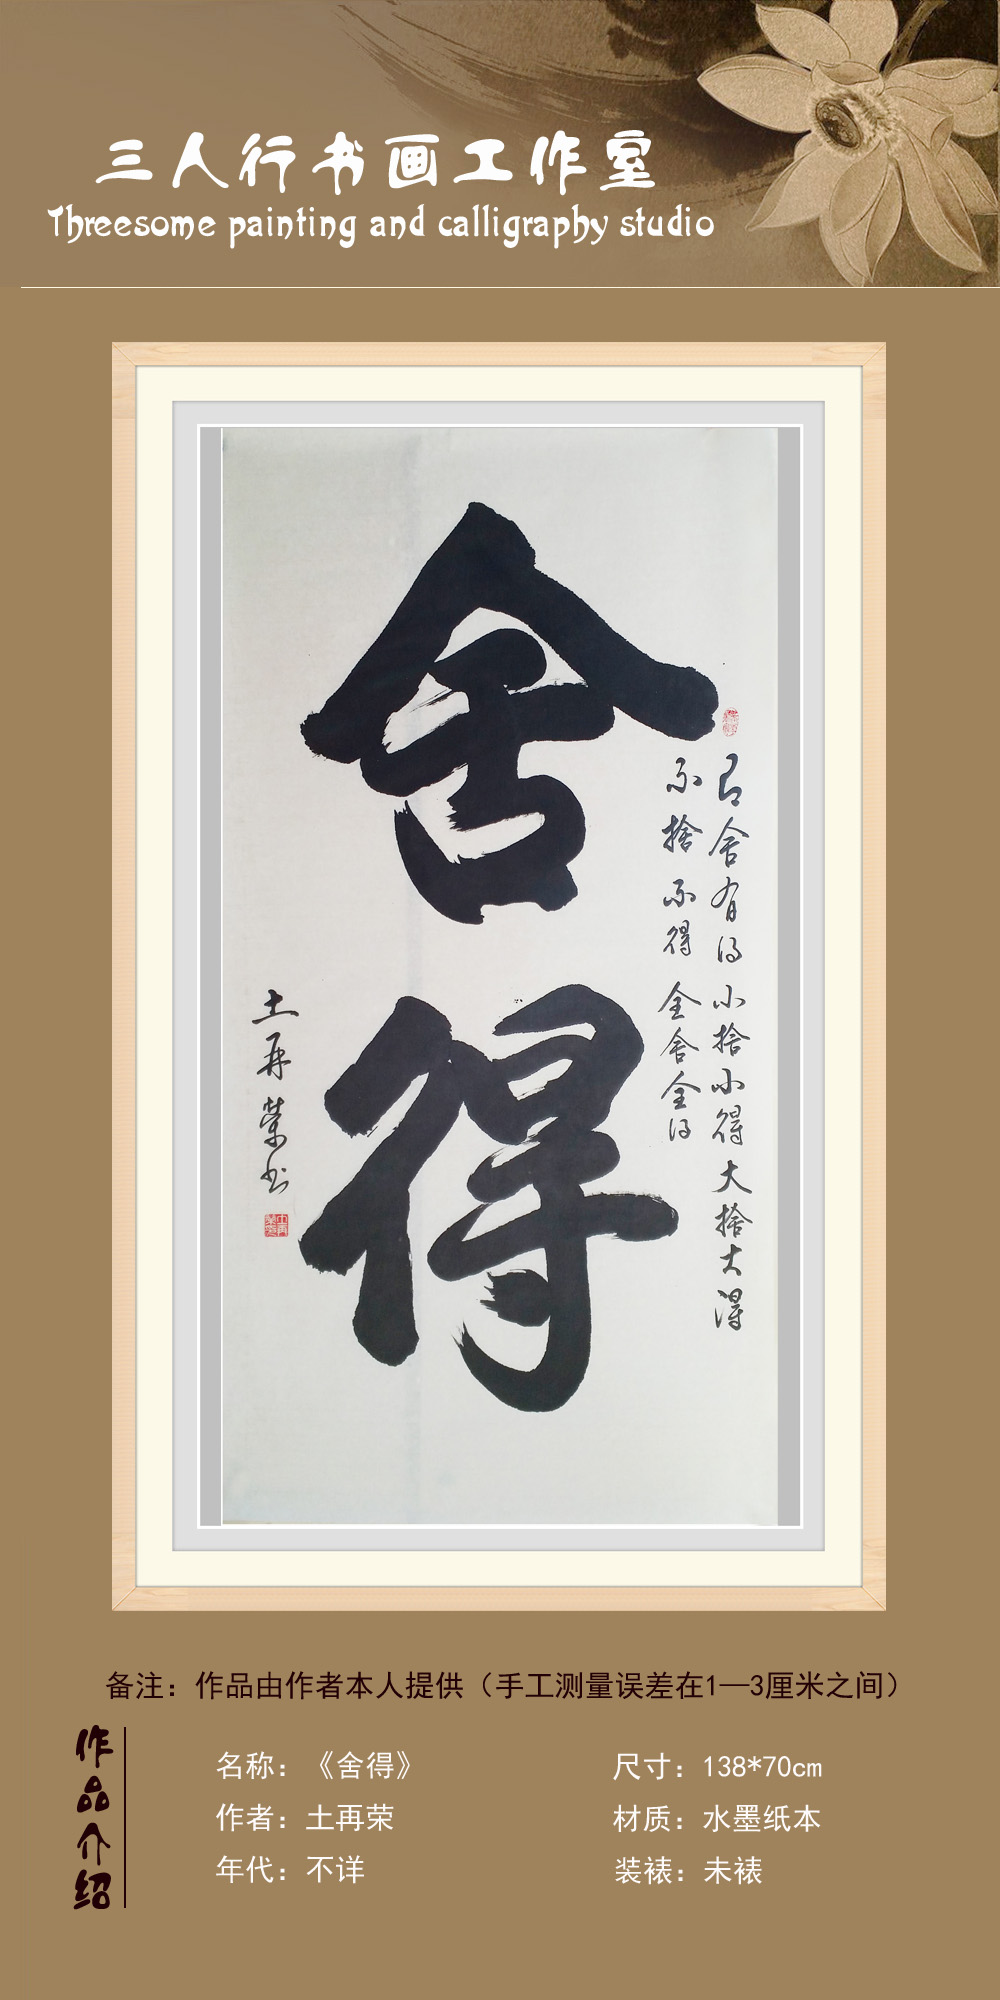 三人行书画工作室
Threesome painting and calligraphy studio
舍得
有舍有得小捨小得大捨大得
不捨不得全舍全得
土再荣书
备注：作品由作者本人提供（手工测量误差在1—3厘米之间）
作品介绍
名称：《舍得》
尺寸：138*70cm
作者：土再荣
材质：水墨纸本
年代：不详
装裱：未裱